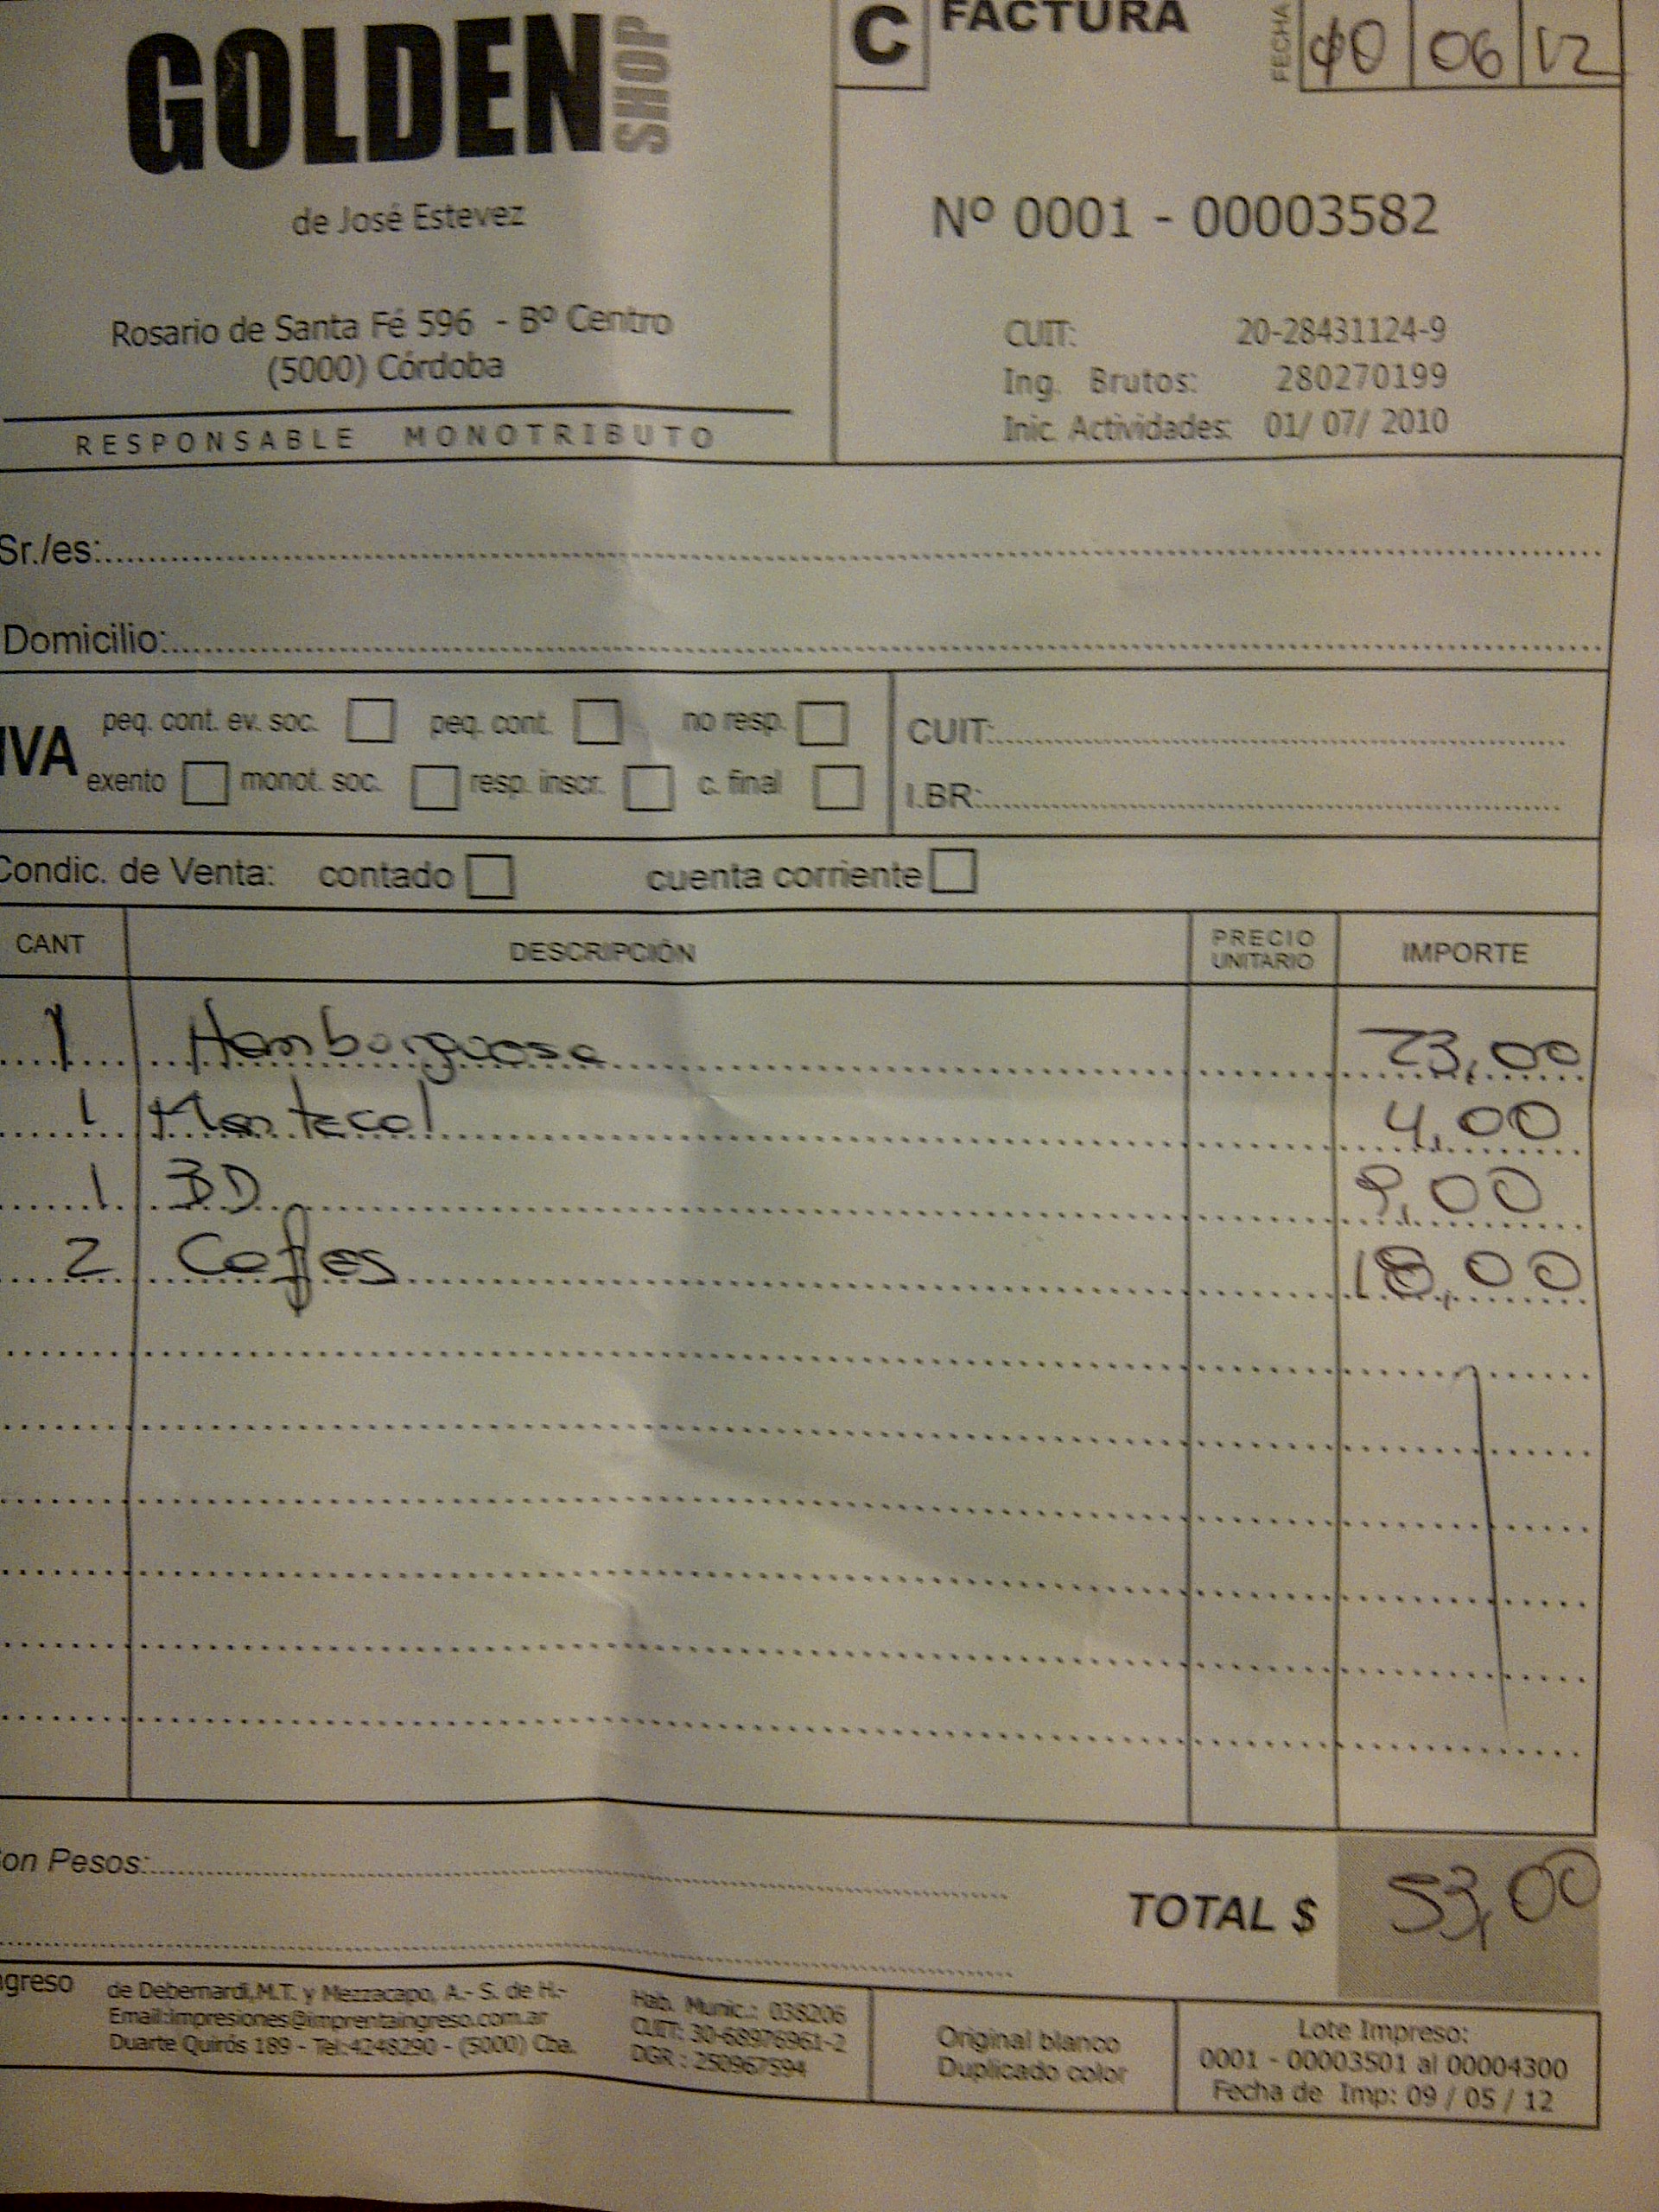 GOLDEN SHOP
de José Estevez
Rosario de Santa Fé 596 - Bº Centro
(5000) Córdoba
RESPONSABLE MONOTRIBUTO
C FACTURA
FECHA 06 12
Nº 0001 - 00003582
CUIT: 20-28431124-9
Ing. Brutos: 280270199
Inic. Actividades: 01/ 07/ 2010
Sr./es:
Domicilio:
IVA peq. cont. ev. soc. peq. cont. no resp.
exento monot. soc. resp. inscr. c. final
CUIT:
I.BR:
Condic. de Venta: contado cuenta corriente
CANT DESCRIPCIÓN PRECIO UNITARIO IMPORTE
1 Hamburguesa 23,00
1 Mantecol 4,00
1 BD 9,00
2 Coffes 18,00
on Pesos:
TOTAL $ 53,00
greso
de Debernardi,M.T. y Mezzacapo, A.- S. de H.-
Email:impresiones@imprentaingreso.com.ar
Duarte Quirós 189 - Tel:4248290 - (5000) Cba.
Hab. Munic.: 038206
CUIT: 30-68976961-2
DGR : 250967594
Original blanco
Duplicado color
Lote Impreso:
0001 - 00003501 al 00004300
Fecha de Imp: 09 / 05 / 12